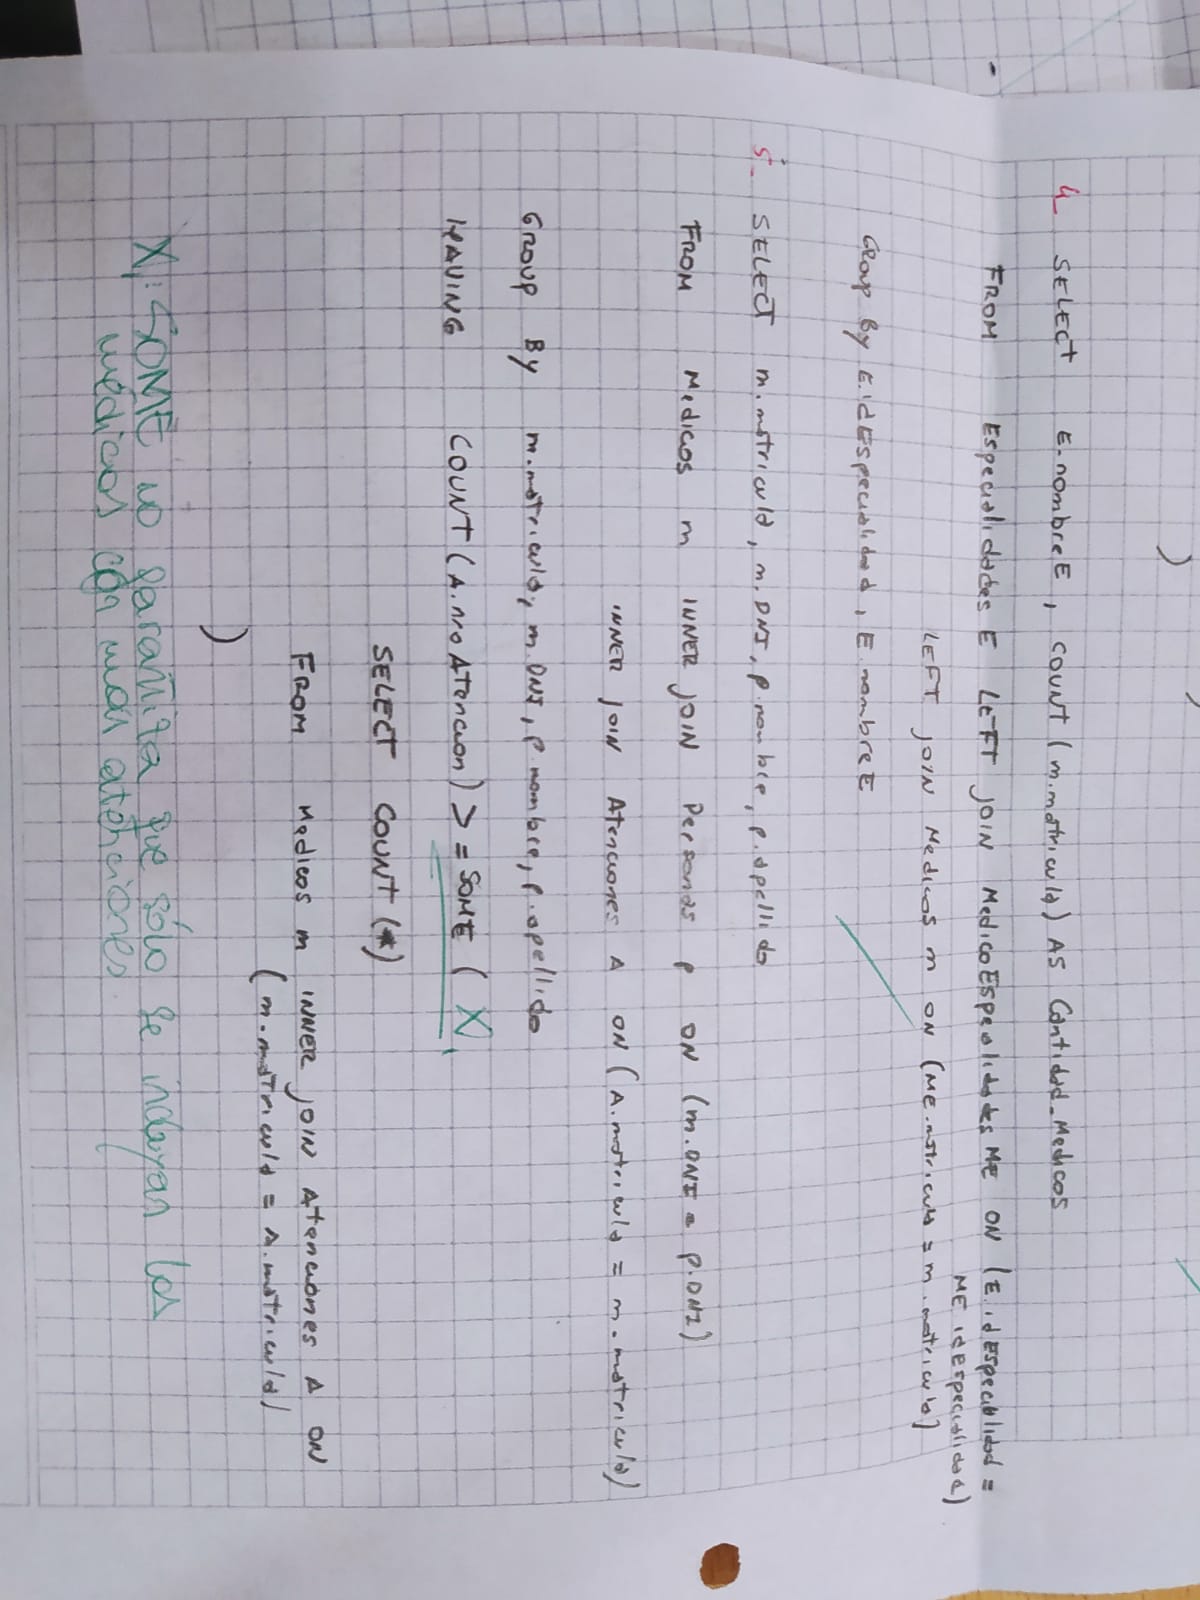 )
4_ SELECT E.nombreE, COUNT (m.matricula) AS Cantidad_Medicos
FROM Especialidades E LEFT JOIN MedicoEspecialidades ME ON (E.idEspecialidad =
ME idEspecialidad)
LEFT JOIN Medicos m ON (ME.matricula = m.matricula)
Group By E.idEspecialidad, E.nombreE
5_ SELECT m.matricula, m.DNI, p.nombre, p.apellido
FROM Medicos m INNER JOIN Personas p ON (m.DNI = p.DNI)
INNER JOIN Atenciones A ON (A.matricula = m.matricula)
GROUP BY m.matricula, m.DNI, p.nombre, p.apellido
HAVING COUNT (A.nroAtencion) >= SOME ( X1
SELECT COUNT (*)
FROM Medicos m INNER JOIN Atenciones A ON
(m.matricula = A.matricula)
)
X1: SOME no garantiza que sólo se incluyan los
médicos con más atenciones.